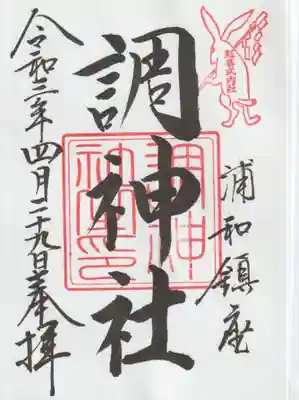 延喜式内社
浦和鎮座
調神社
令和二年四月二十九日奉拝